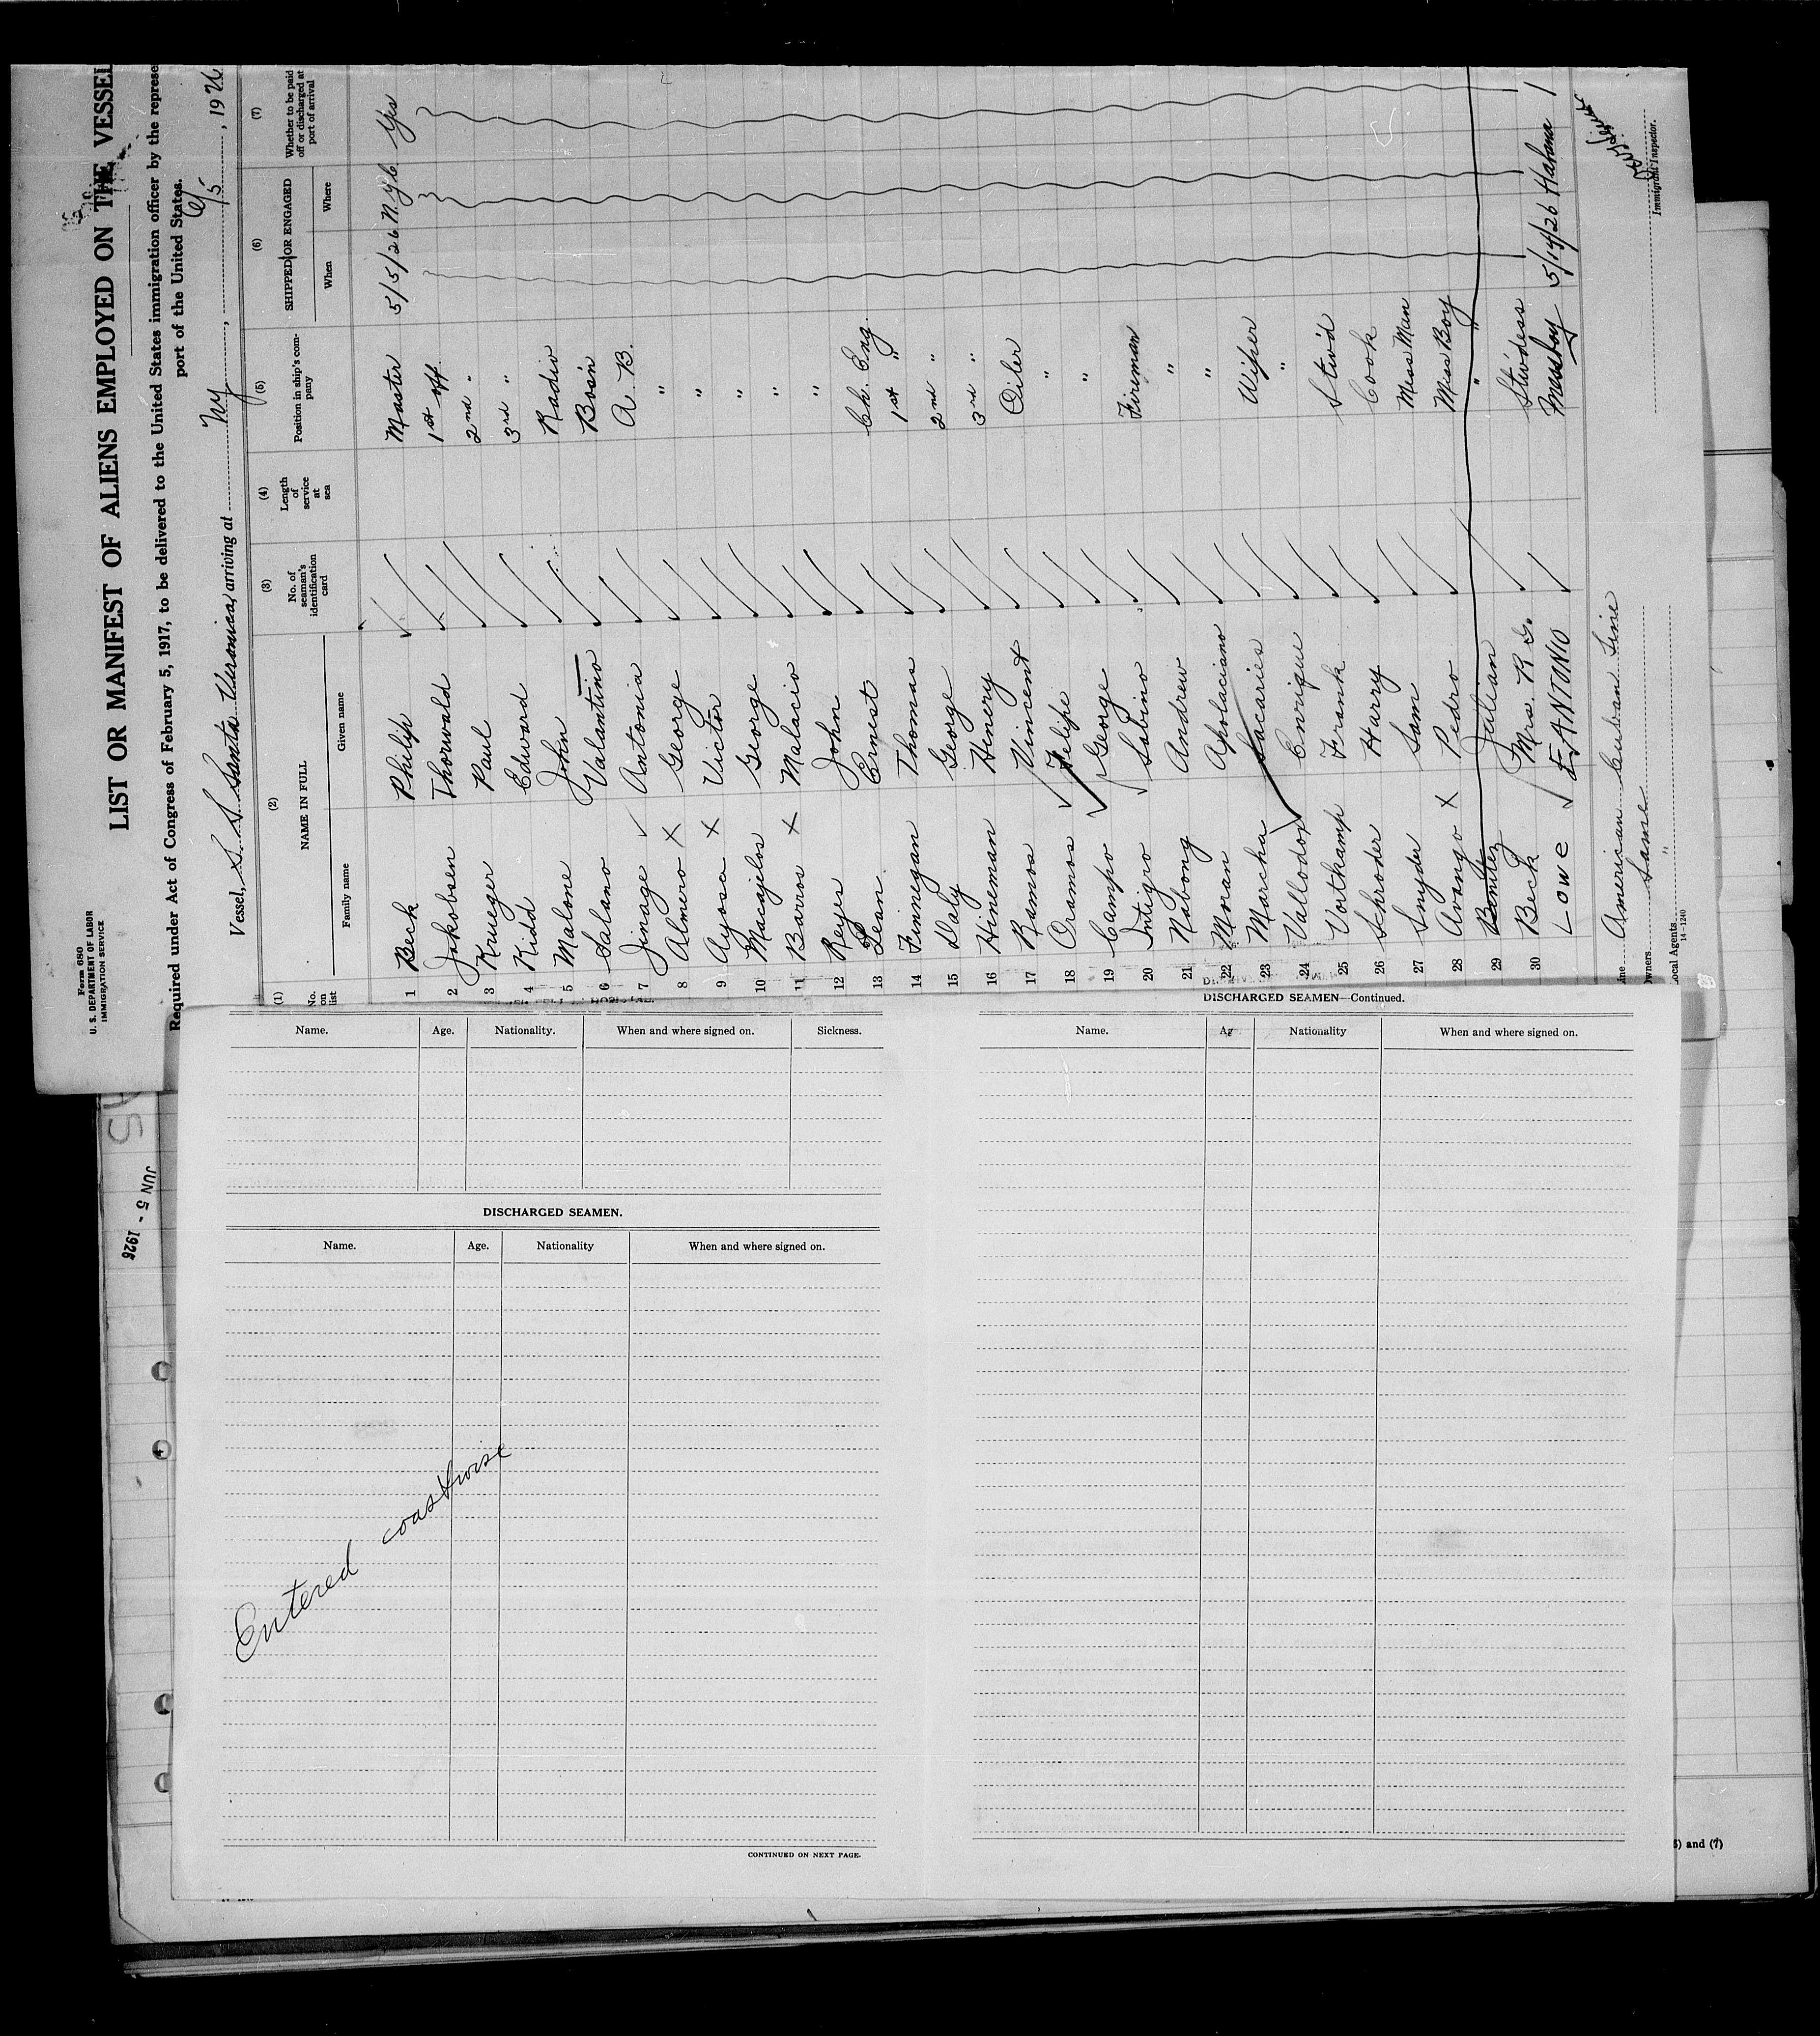 Form 680
U. S. DEPARTMENT OF LABOR
IMMIGRATION SERVICE
LIST OR MANIFEST OF ALIENS EMPLOYED ON THE VESSEL
Required under Act of Congress of February 5, 1917, to be delivered to the United States immigration officer by the represe
port of the United States.
Vessel, S. S. Santa Veronica, arriving at NY, 6/5, 1926
(1) (2) (3) (4) (5) (6) (7)
No. on list NAME IN FULL No. of seaman's identification card Length of service at sea Position in ship's company SHIPPED OR ENGAGED Whether to be paid off or discharged at port of arrival
Family name Given name When Where
1 Beck Philip Master 5/5/26 N.Y.C. Yes
2 Jakobsen Thorwald 1st off
3 Krueger Paul 2nd "
4 Kidd Edward 3rd "
5 Malone John Radio
6 Salano Valantino Bos'n
7 Jinage Antonia A. B.
8 Almero X George "
9 Ayosa X Victor "
10 Macajelos George "
11 Barros X Malacio "
12 Reyes John "
13 Lean Ernest Ch. Eng.
14 Finnegan Thomas 1st "
15 Daly George 2nd "
16 Hineman Henery 3rd "
17 Ramos Vincent Oiler
18 Oramos Felipe "
19 Campo George "
20 Intigro Sabino Fireman
21 Nabong Andrew "
22 Moran Apolaciano "
23 Marcha Sacaries Wiper
24 Vallodor Enrique "
25 Vortkamp Frank Stw'd
26 Schroder Harry Cook
27 Snyder Sam Mess Man
28 Avango X Pedro Mess Boy
29 Bonitez Julian "
30 Beck Mrs. R G. Stw'dess
Lowe ANTONIO Messboy 5/14/26 Habana
American Cuban Line
wners Same
ocal Agents "
Immigrant Inspector.
14-1240
JUN 5 - 1926
Name. Age. Nationality. When and where signed on. Sickness.
DISCHARGED SEAMEN.
Name. Age. Nationality When and where signed on.
Entered coastwise
CONTINUED ON NEXT PAGE.
DISCHARGED SEAMEN—Continued.
Name. Ag Nationality When and where signed on.
) and (7)